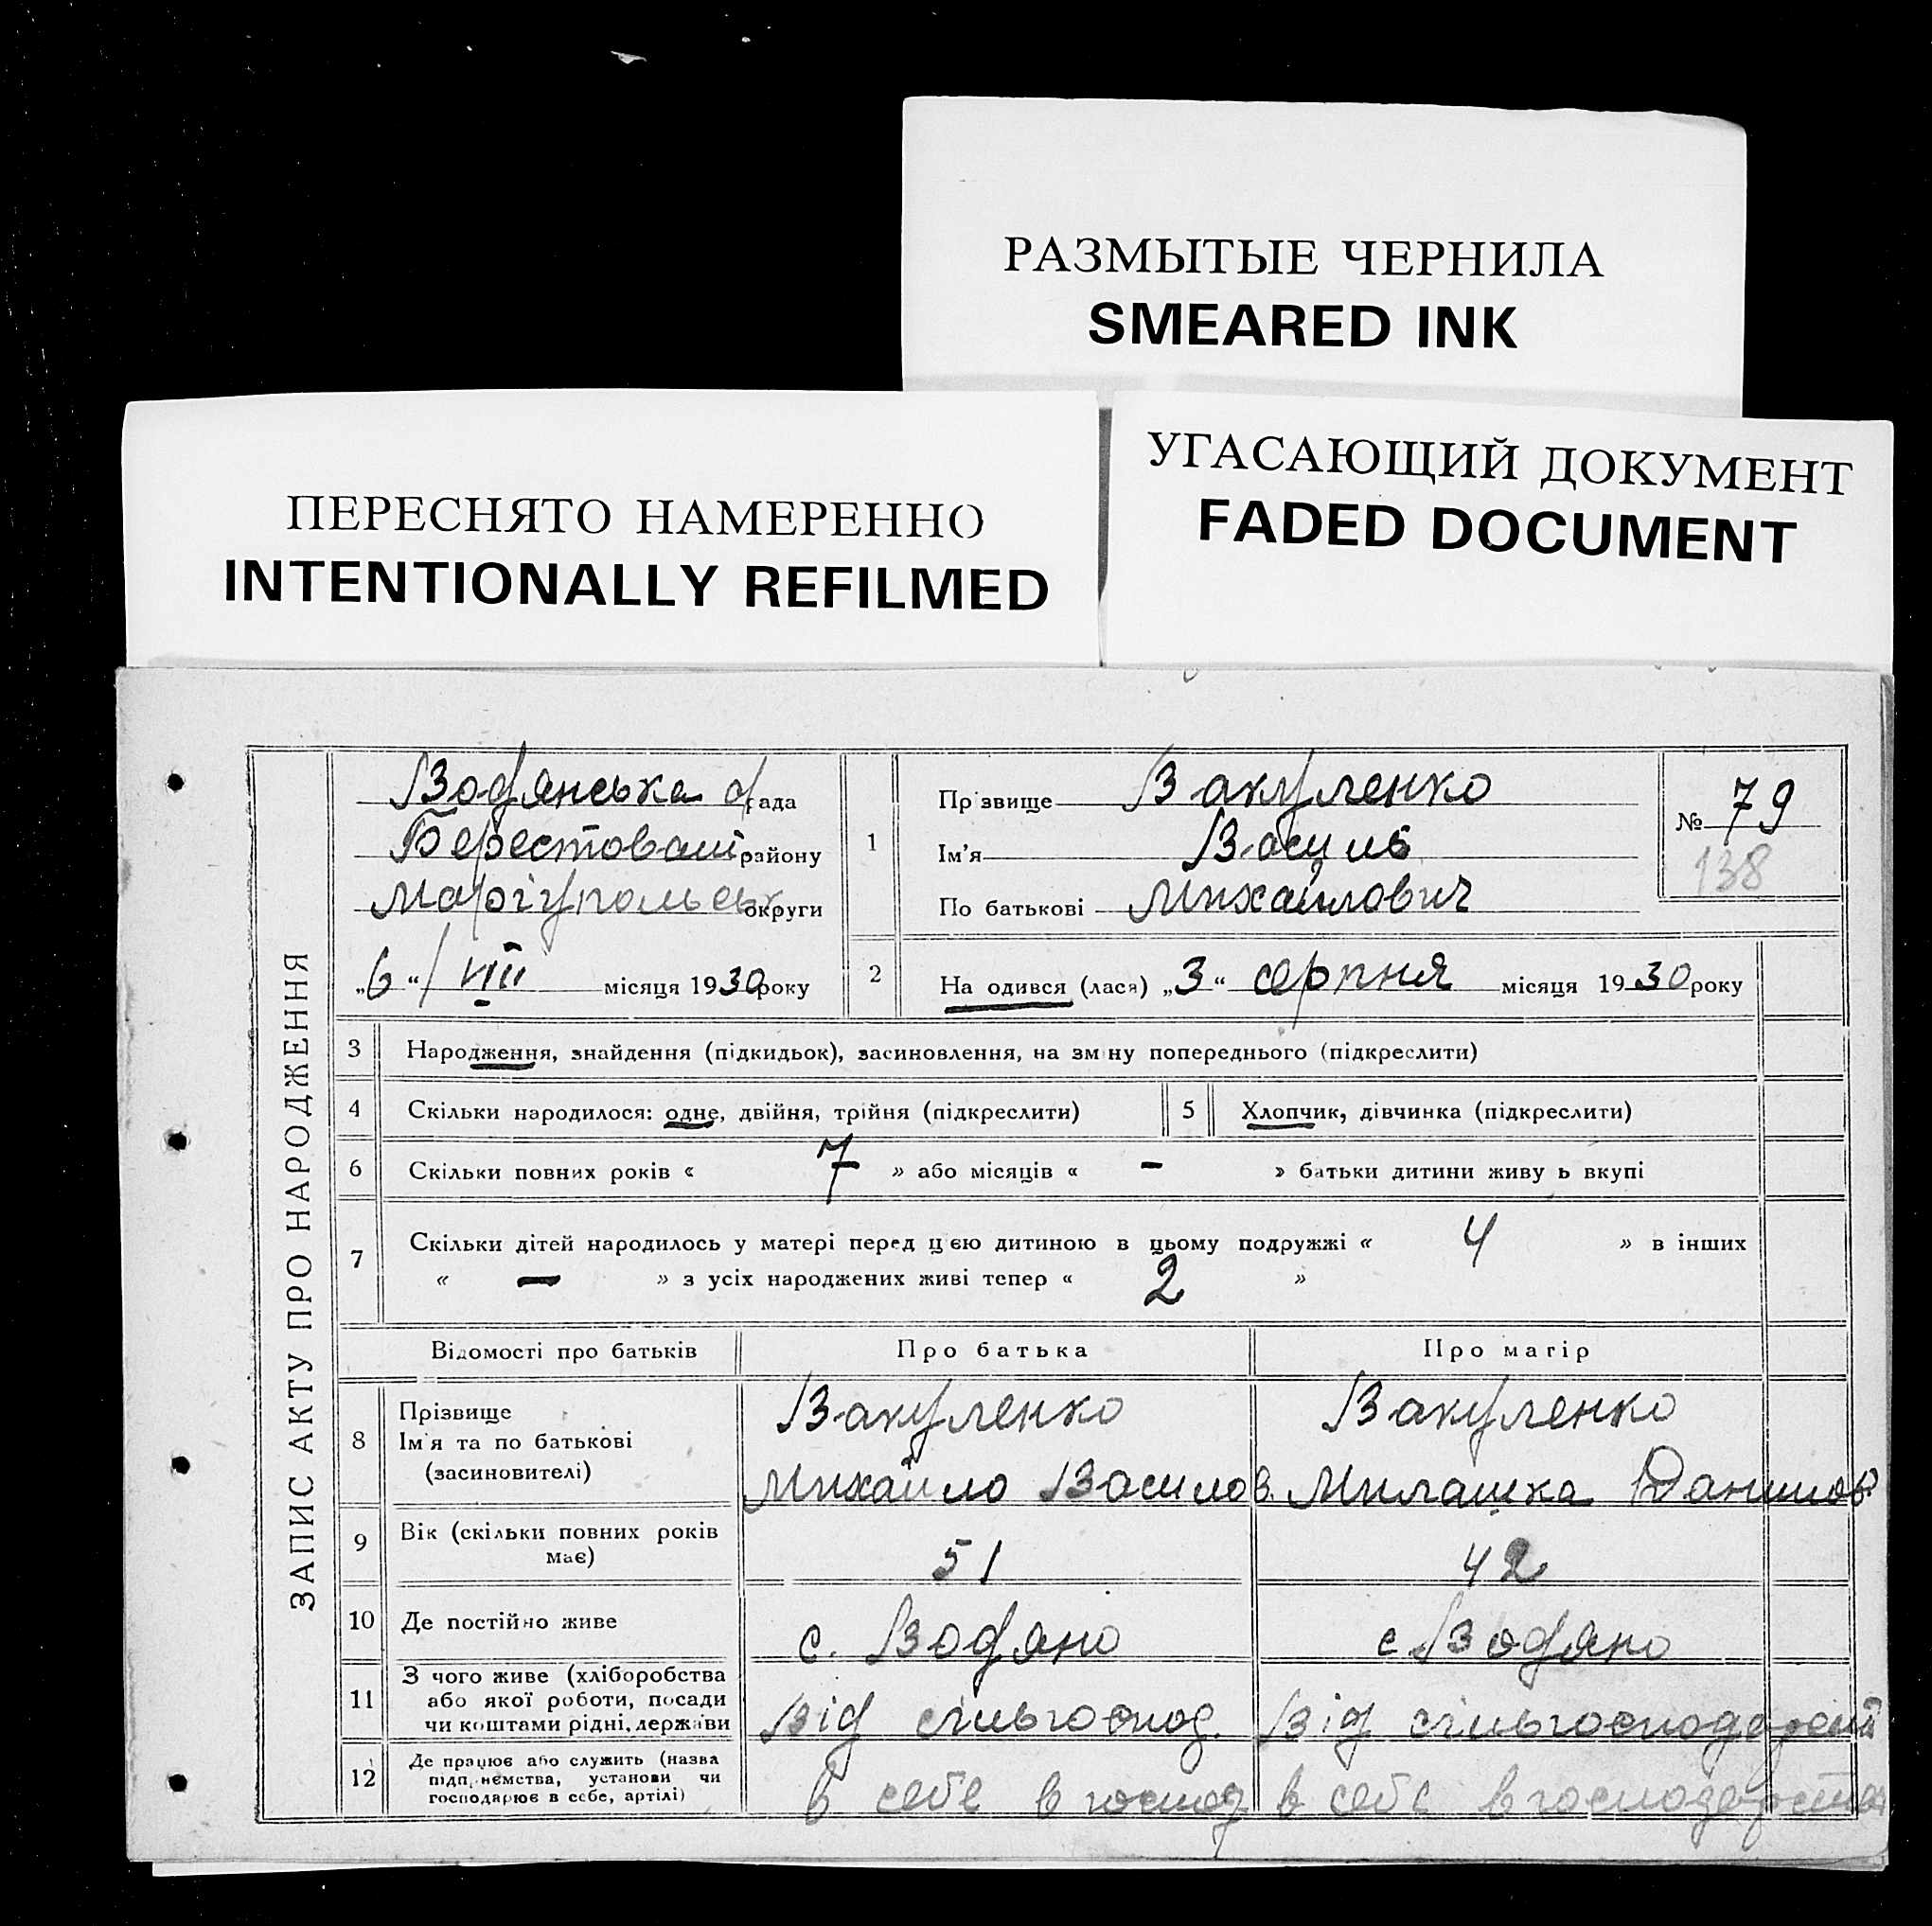 РАЗМЫТЫЕ ЧЕРНИЛА
SMEARED INK
УГАСАЮЩИЙ ДОКУМЕНТ
FADED DOCUMENT
ПЕРЕСНЯТО НАМЕРЕННО
INTENTIONALLY REFILMED
ЗАПИС АКТУ ПРО НАРОДЖЕННЯ
Водянська рада
Берестоваш району
Маріупольськ округи
„6“ VIII місяця 1930 року
1
Прізвище Вакуленко
Ім'я Василь
По батькові Михайлович
№ 79
138
2 На одився (лася) „3“ серпня місяця 1930 року
3 Народження, знайдення (підкидьок), засиновлення, на зміну попереднього (підкреслити)
4 Скільки народилося: одне, двійня, трійня (підкреслити) 5 Хлопчик, дівчинка (підкреслити)
6 Скільки повних років « 7 » або місяців « - » батьки дитини живу ь вкупі
7 Скільки дітей народилось у матері перед цією дитиною в цьому подружжі « 4 » в інших
« — » з усіх народжених живі тепер « 2 »
Відомості про батьків Про батька Про матір
8 Прізвище Вакуленко Вакуленко
Ім'я та по батькові
(засиновителі) Михайло Василов. Милашка Данилов
9 Вік (скільки повних років
має) 51 42
10 Де постійно живе с. Водяно с. Водяно
11 З чого живе (хліборобства
або якої роботи, посади
чи коштами рідні, держави Від сільгоспод. Від
12 Де працює або служить (назва
підприємства, установи чи
господарює в себе, артілі) в себе в господ в себе в